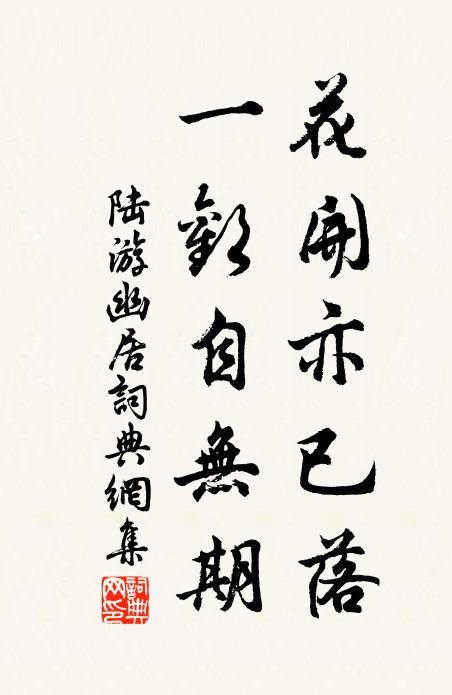 花開亦已落
一歡自無期
陆游幽居詞典網集
詞典網印